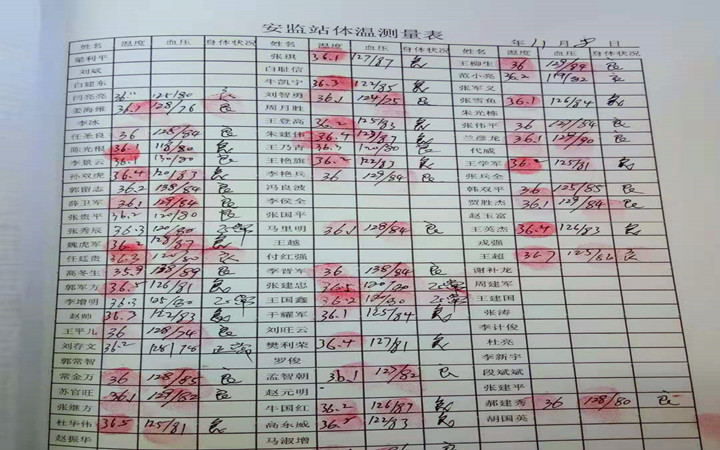 安监站体温测量表
年 11 月 8 日
姓名 温度 血压 身体状况 姓名 温度 血压 身体状况 姓名 温度 血压 身体状况
梁利平 张琪 36.1 127/87 良 王柳生 36 129/84 良
刘斌 白聪信 范小亮 36.2
白建东 牛凯宇 36.3 122/85 良 张军义
闫亮亮 125/80 良 刘智勇 36.1 124/25 良 张雪鱼 36.1 126/84 良
姜海维 36.1 128/76 良 周月胜 朱光栋
李冰 王登高 36.2 125/83 良 张伟平 36 127/84 良
任圣良 36 128/84 良 朱建伟 36.4 123/87 良 兰彦龙 36.1 129/90 良
陈光根 36.1 118/80 良 王乃吉 36.3 120/80 良 代威
李景云 36.1 130/80 良 王艳旗 36.2 122/83 良 王学军 36.2 125/81 良
孙双虎 36.4 120/83 良 李艳兵 36 129/84 良 张兵全
郭留志 36.2 138/84 良 冯良波 韩双平 36 125/85 良
薛卫军 36.1 129/84 良 李侯全 贾胜杰 36.1 129/84 良
张贵平 36.2 120/80 良 张国平 赵玉富
张秀辰 36.3 120/80 正常 马里明 36.1 128/84 良 王英杰 36.4 126/83 良
魏虎军 36.2 128/87 良 王越 戎强
任廷贵 36.3 120/80 良 付红强 王超 36.7 良
高冬生 35.9 138/89 良 李晋军 36 138/84 良 谢补龙
郭军方 36.5 126/81 良 张建忠 36.5 120/80 正常 周建军
李增明 36.3 125/80 正常 王国鑫 36.2 120/80 正常 王建国
赵帅 36.3 122/83 良 于耀军 36.1 125/84 良 张涛
王平儿 36 128/74 良 刘旺云 李计俊
刘存文 36.2 128/78 正常 樊利荣 36.4 127/81 良 杜亮
郭常智 罗俊 李新宇
常金万 36 128/85 良 孟智朝 36.1 127/82 良 段斌斌
苏官旺 36.1 129/82 良 赵元明 张建平
张继方 牛国红 36.2 126/87 良 郝建秀 36 128/80 良
杜华伟 36.5 125/81 良 高东威 36.5 122/83 良 胡国英
赵振华 马淑增